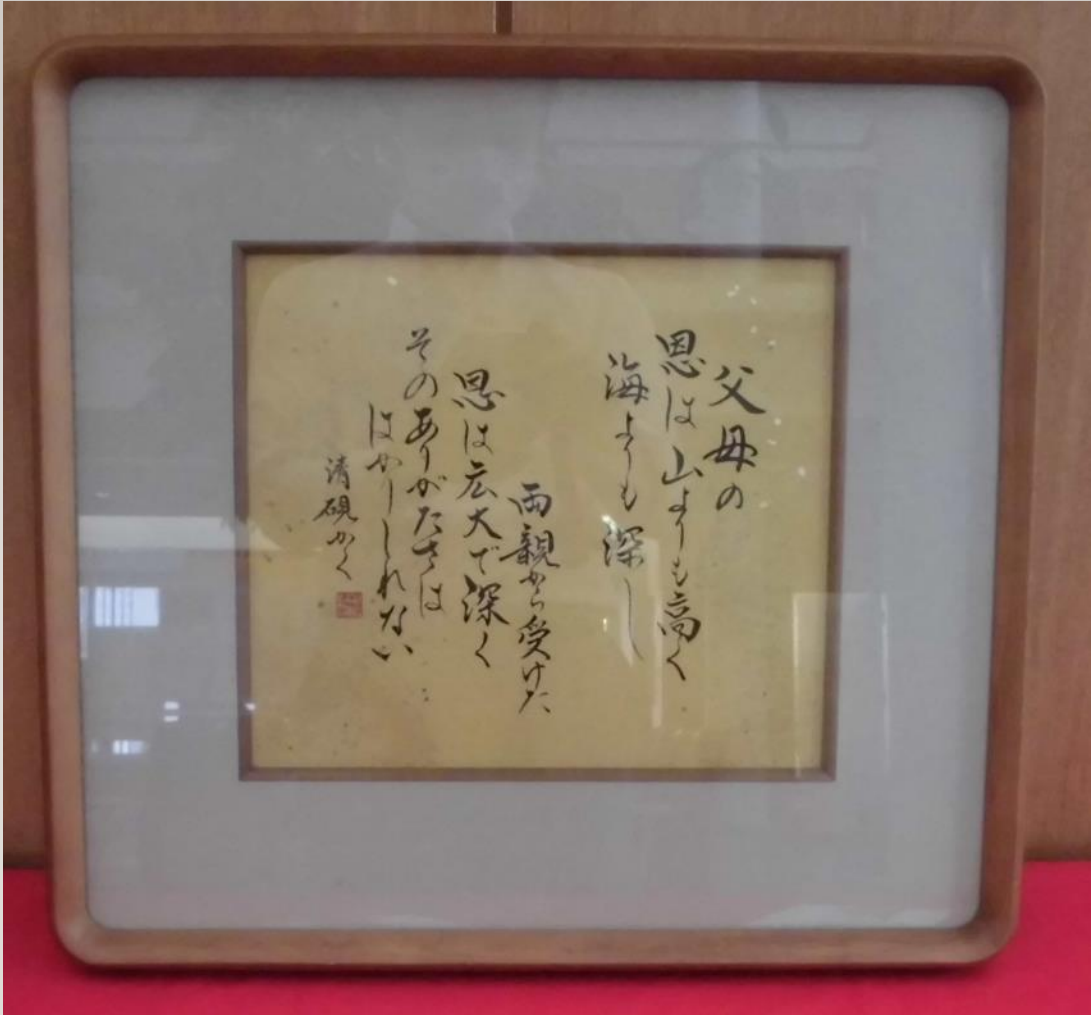 父母の
恩は山よりも高く
海よりも深し
両親から受けた
恩は広大で深く
そのありがたさは
はかりしれない
清硯かく